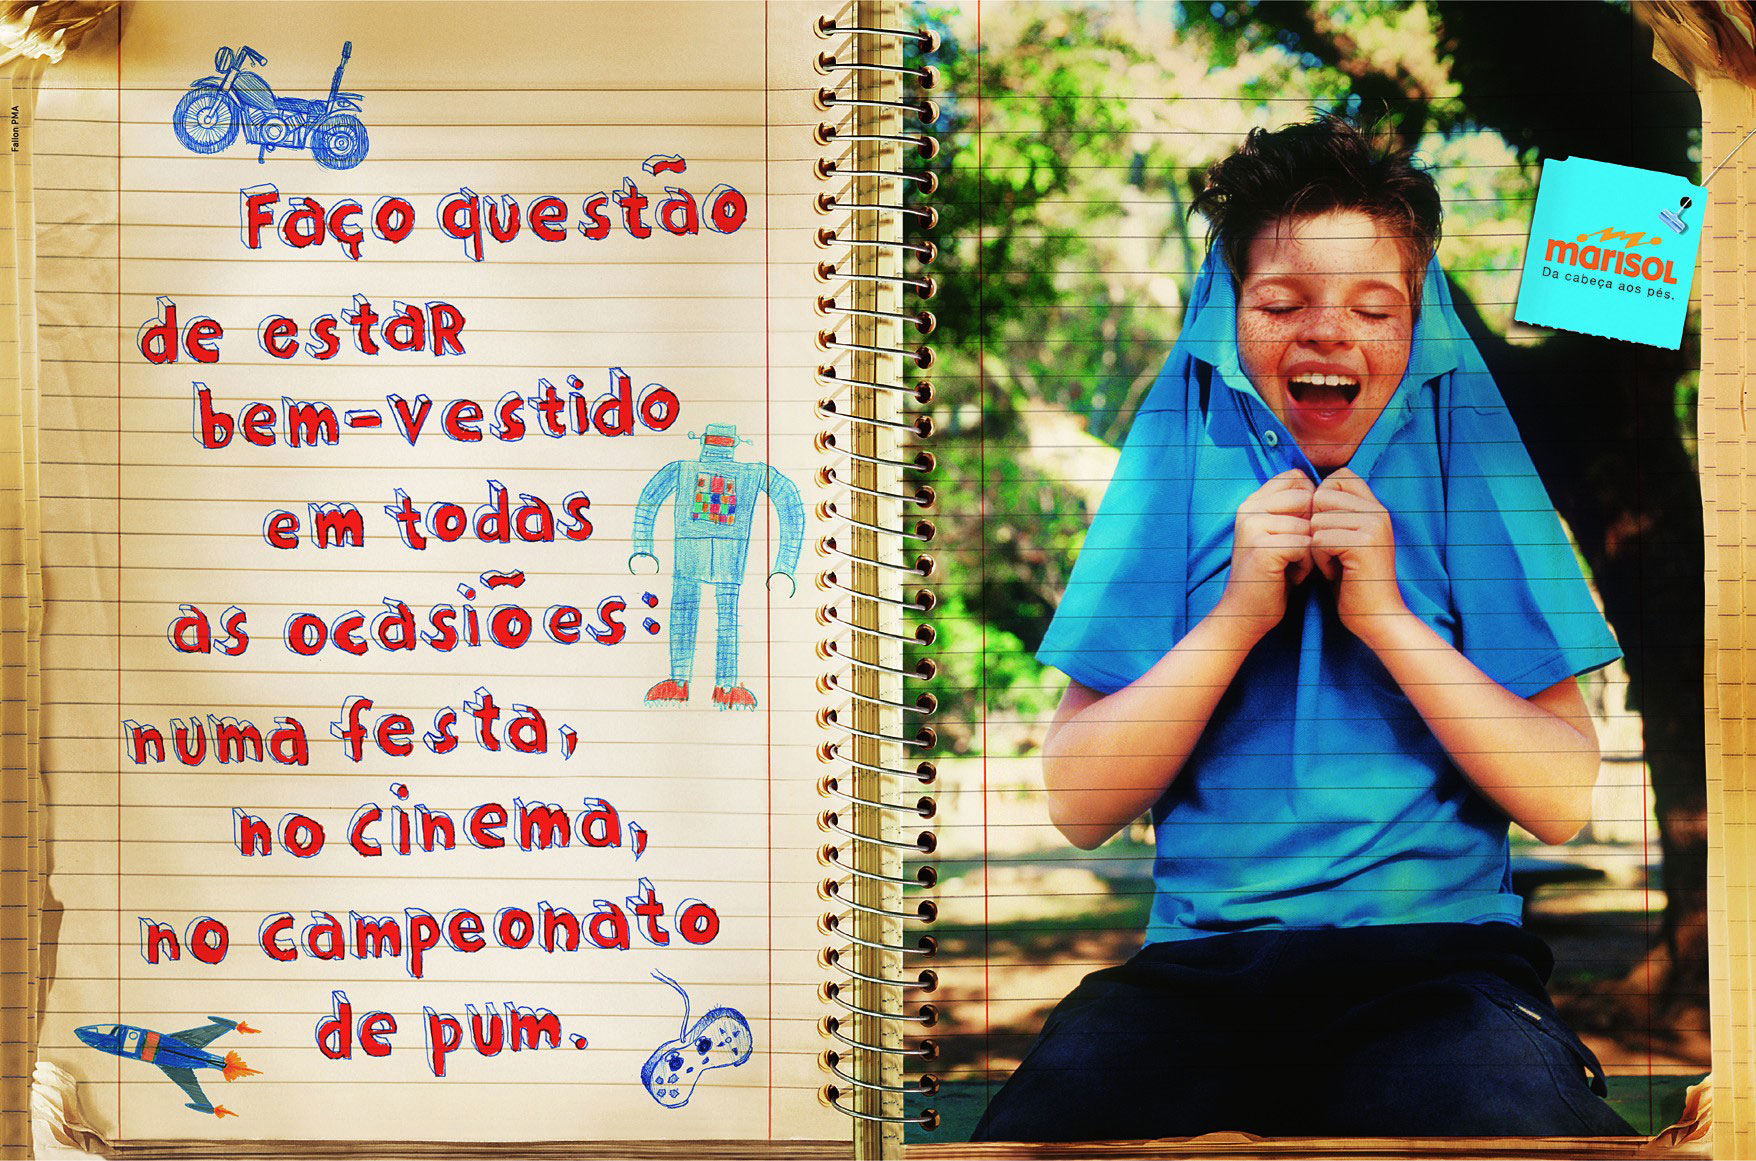 Fallon PMA
Faço questão
de estar
bem-vestido
em todas
as ocasiões:
numa festa,
no cinema,
no campeonato
de pum.
marisol
Da cabeça aos pés.